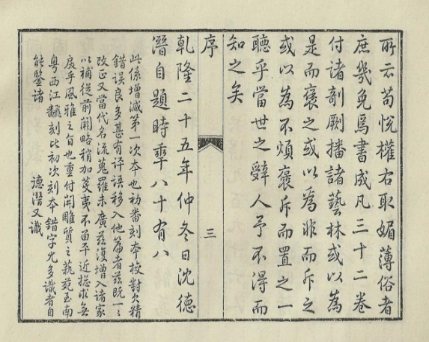 所云苟悅權右取媚薄俗者
庶幾免焉書成凡三十二卷
付諸剞劂播諸藝林或以為
是而褒之或以為非而斥之
或以為不煩褒斥而置之一
聽乎當世之辭人予不得而
知之矣
序
三
乾隆二十五年仲冬日沈德
潛自題時年八十有八
此係增減第一次本也初番刻本校對欠精
錯誤良多甚有評語移入他篇者茲既一一
改正又當代名流蒐羅未廣茲復增入諸家
以補從前闕略稍加芟薙不留平近總求無
戾乎風雅之旨也重付開雕質之蓺苑至南
粵西江翻刻此初次刻本錯字尤多識者自
能鑒諸
德潛又識